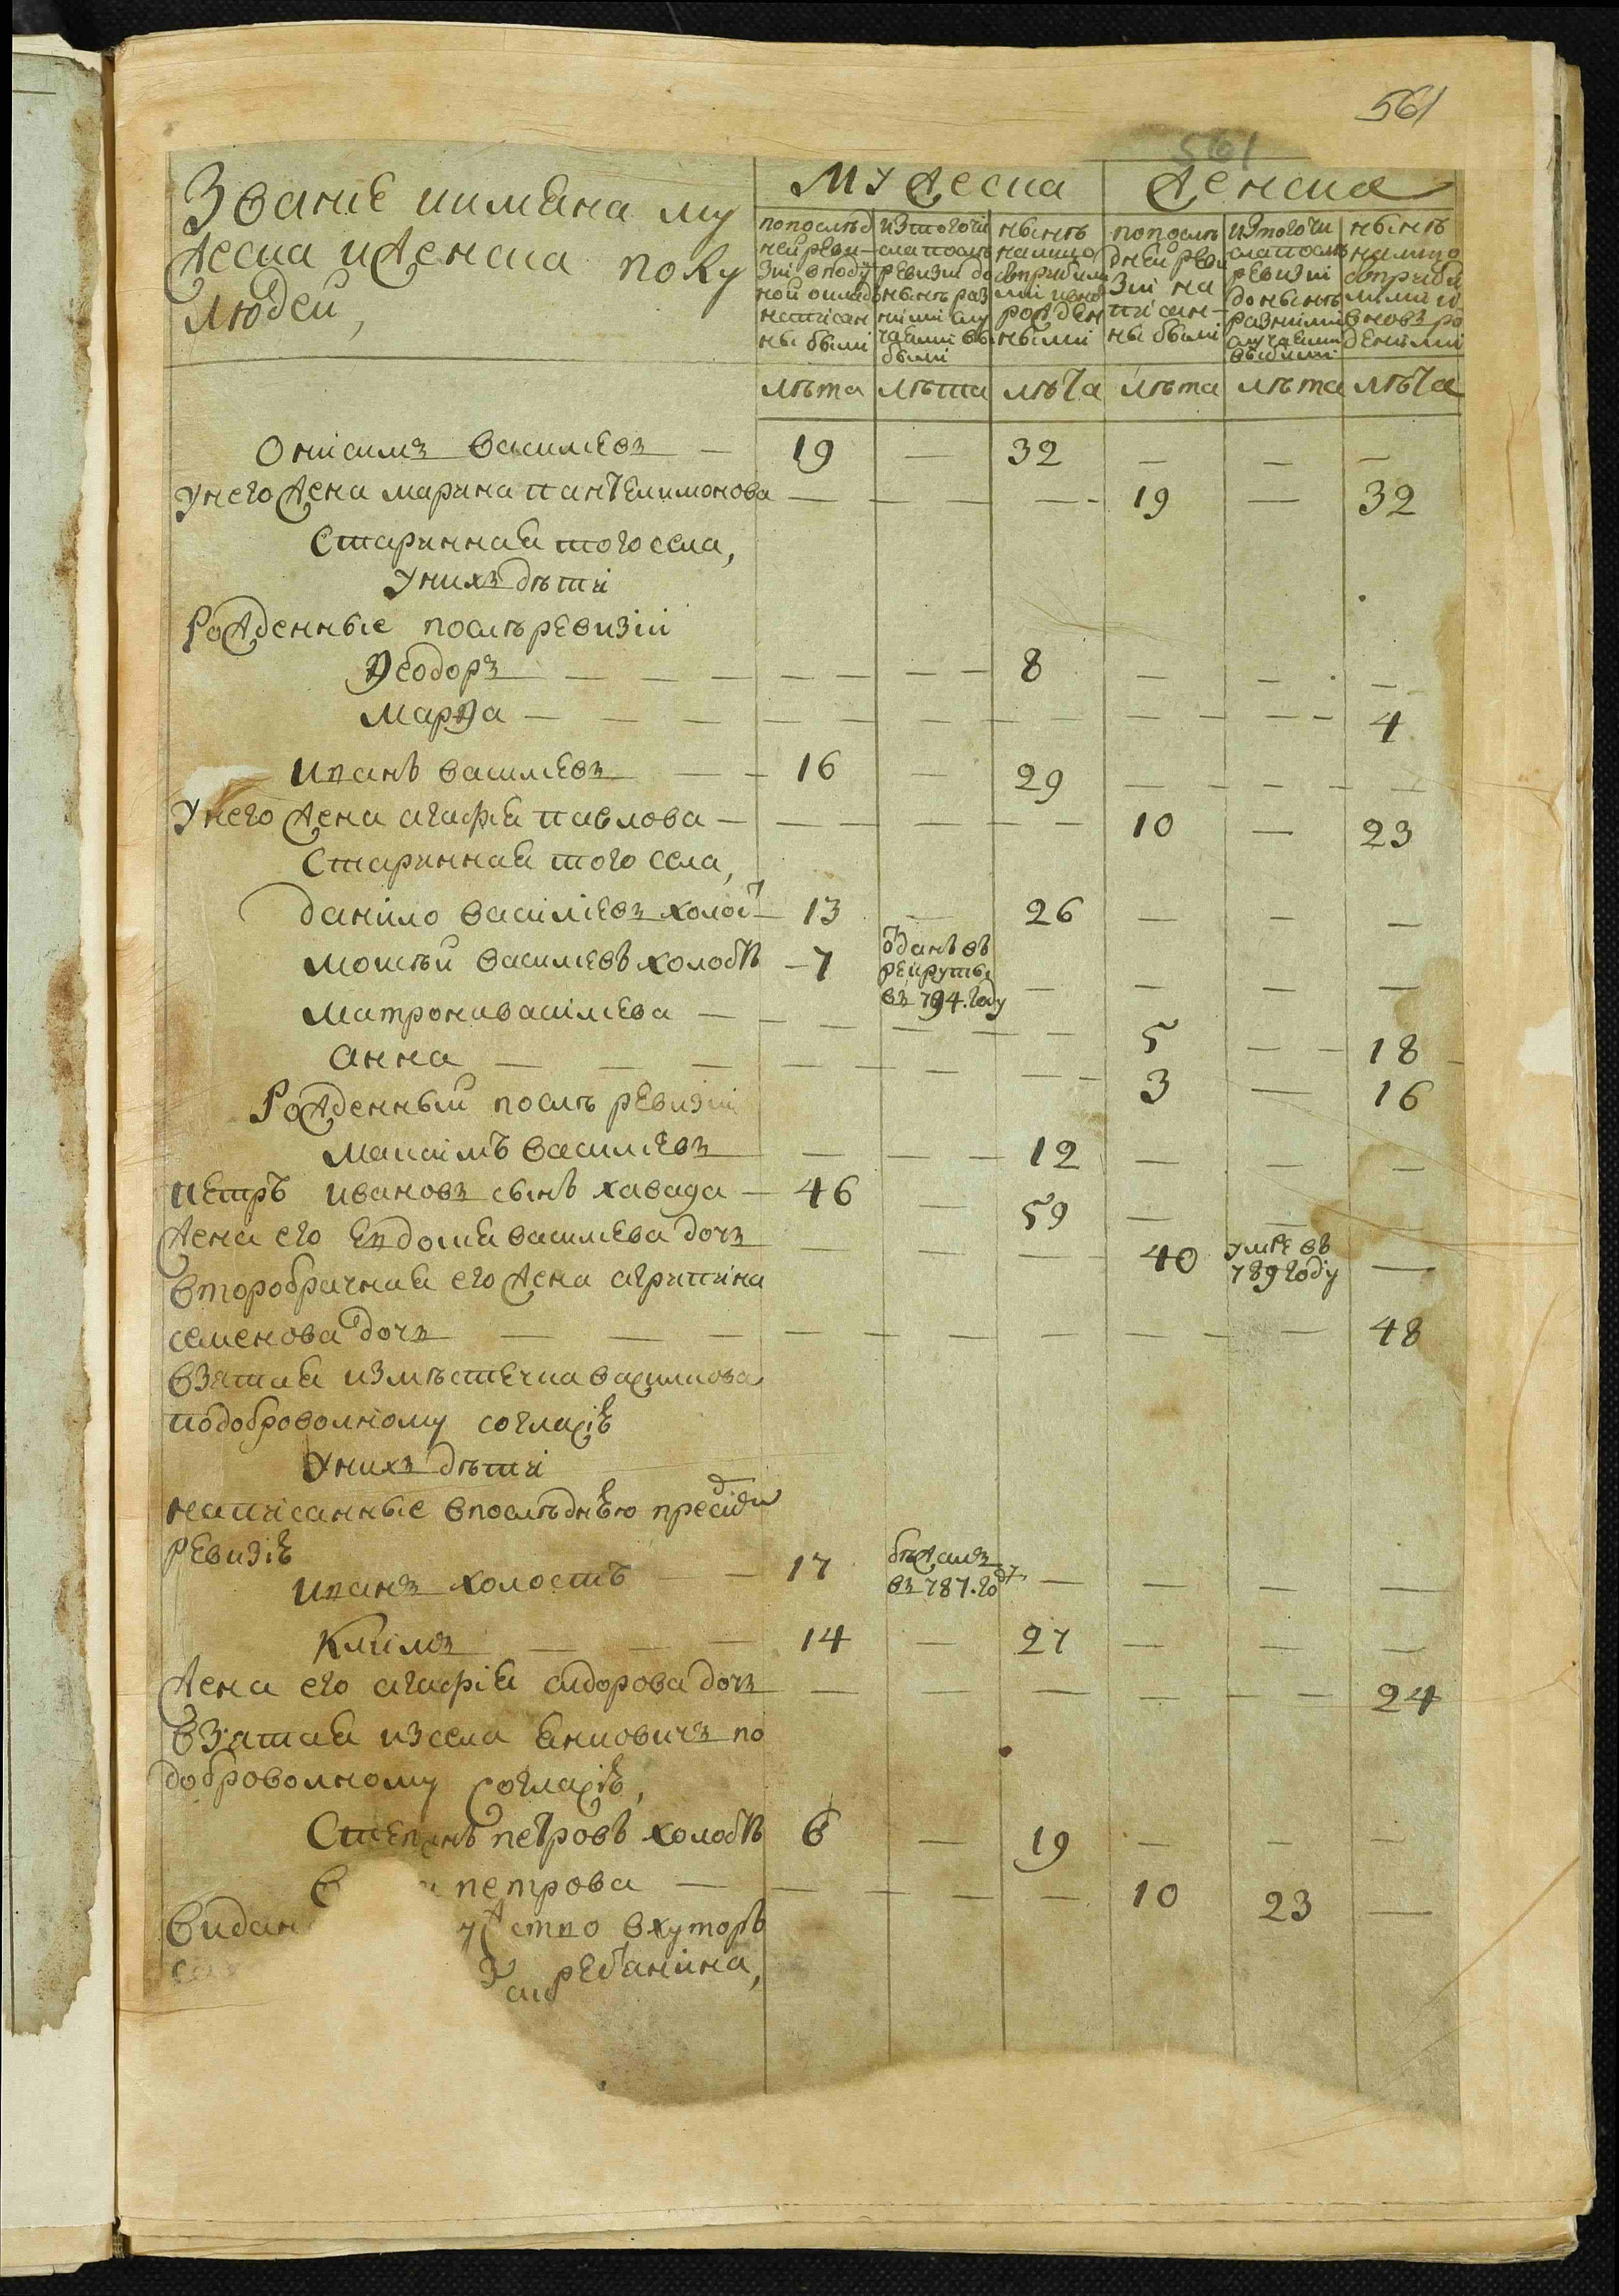 561
561
Званіе иимяна му
жеска иженска полу
людей,
Мужеска
Женска
попослѣд
ней реви-
зіи вподу-
ной окладъ
написан
ны были
изтогочи
слапослѣ
ревизіи до
нынѣ раз
ними слу
чаями вы
были
нынѣ
налицо
сприбилы
ми ивно
рожден
ными
попослѣ
дней реви
зіи на
писан-
ны были
изтогочи
слапослѣ
ревизіи
донынѣ
разними
случаями
выбыли
нынѣ
налицо
сприбы
лыми и
вновъ ро
деними
лѣта лѣта лѣта лѣта лѣта лѣта
Онисимъ василиевъ — 19 — 32 — — —
Унего жена марина пантелимонова — — — 19 — 32
Старинная того села,
Унихъ дѣти
Рожденные послѣ ревизіи
Ѳеодоръ — — — 8 — — —
Марѳа — — — — — — 4
Иванъ василиевъ — 16 — 29 — — —
Унего жена агафія павлова — — — — 10 — 23
Старинная того села,
Данило василіевъ холост 13 — 26 — — —
Мокѣй василиевъ холостъ — 7 отданъ въ
рекруты
въ 794. году — — — —
Матрона василиева — — — — 5 — 18
Анна — — — — 3 — 16
Рожденный послѣ ревизіи
Максімъ василиевъ — — 12 — — —
Петръ ивановъ сынъ хавада — 46 — 59 — — —
Жена его Евдокія василиева дочъ — — — 40 умре въ
789 году —
Второбрачная его жена агрипина
семенова дочъ — — — — — — 48
взятая измѣстечка василкова
подоброволному согласію
Унихъ дѣти
написанные впослѣднею пред сим
ревизію
Иванъ холостъ — 17 бѣжалъ
въ 787. год — — — —
Климъ — 14 — 27 — — —
Жена его агафія сидорова дочъ — — — — — 24
взятая изсела янковичъ по
доброволному согласію,
Степанъ петровъ холостъ 6 — 19 — — —
петрова — — — — 10 23 —
видан вхуторъ